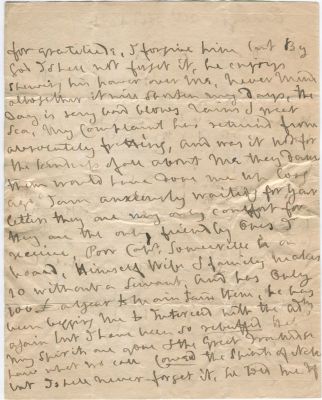 for gratitude, I forgive him but By
God I shall not forget it, he enjoys
shewing his power over me, never mind
altogether it will shorten my days, the
Day is very bad blows Rain & great
Sea, My Complaint has returned from
absolutely fretting, and was it not for
the kindness of all about me they damn
them would have done me up long
ago. I am anxiously waiting for your
letters they are my only comfort for
they are the only friendly Ones I
receive. Poor Capt Somerville is on
board, Himself Wife & family makes
20 without a Servant, and has Only
100£ a year to maintain them, he has
been begging me to Interced with the Adty
again but I have been so rebuffed that
my Spirits are gone & the Great Troubridge
have what we call Cowed the Spirits of Nelson
but I shall never forget it, he told me if